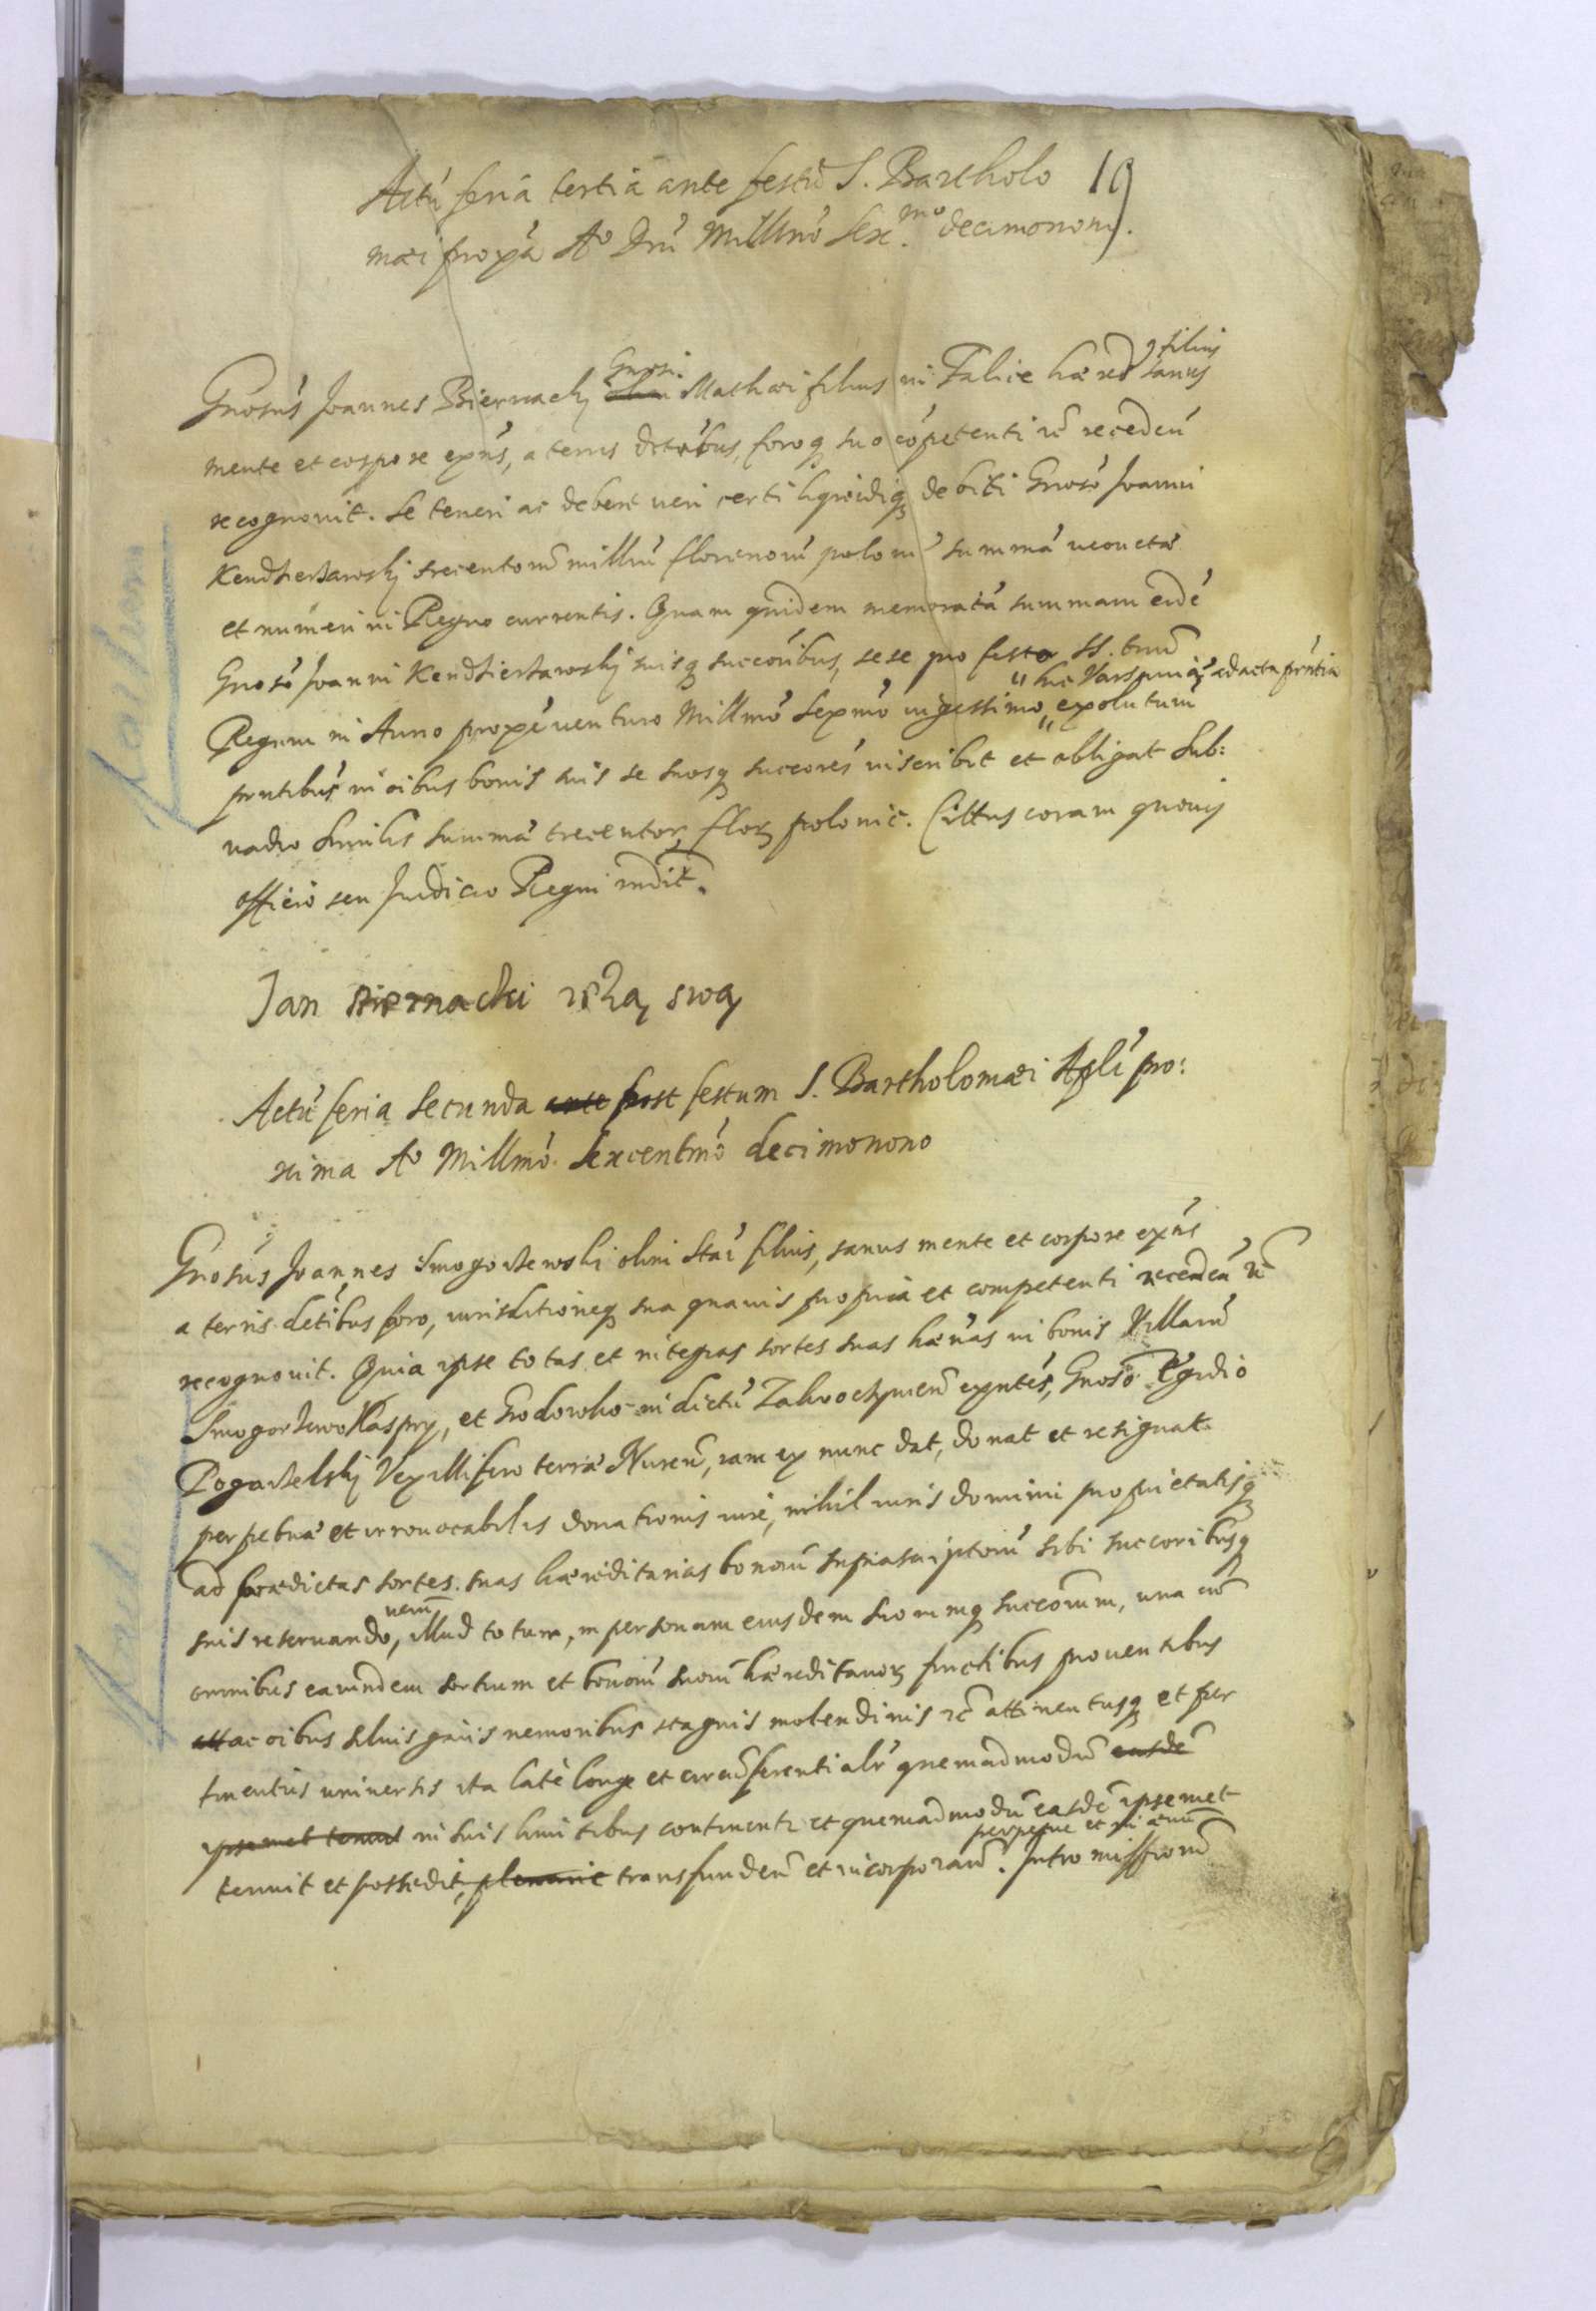 Actū feria tertia ante festū S. Bartholo 19
mæi proxā Aº Dnī Millmō Sexᵐᵒ decimonono.
filius
Gnosi.
Gnosus Joannes Biernackj olim Mathæi filius in Falice hæred sanus
mente et corpore exñs, a terris dctribus, foroq suo cōpetenti rc recedeñ
recognovit. Se teneri ac debere veri certi liquidiq debiti Gnoso Joanni
Kendzierzawskj trecentorū millū florenorū polon summā monetæ
et numeri in Regno currentis. Quam quidem memoratā summam eidē
Gnoso Joanni Kendzierzawskj suisq succoribus, se se pro festo SS. triū
" hic Varsaviæ ad acta prñtia
Regum in Anno proxē venturo Millmō Sexmō vigessimo " exoluturū
prñtibus in oibus bonis suis se suosq succores inscribit et obligat Sub:
vadio similis summæ trecentor florꝝ polonic. Cittus coram quovis
officio seu Judicio Regni rndit.
Jan Biernacki ręką swą
Actū feria Secunda ante post festum S. Bartholomæi Apli pro:
xima Aº Millmō Sexcentmō decimonono
Gnosus Joannes Smogorzewski olim Stai filius, sanus mente et corpore exñs
a terris dctibus foro, iurisdictioneq sua quavis propria et competenti recedeñ rc
recognovit. Quia ipse totas et integras sortes suas hærias in bonis Villarū
Smogorzewo Kaspry, et Grodowko in dictū Zakroczymeñ exñtes, Gnoso Egidio
Pogorzelskj Vexillifero terræ Nureñ, iam ex nunc dat, donat et resignat
perpetuæ et irrevocabilis donationis iure, nihil iuris dominii proprietatisq
ad prædictas sortes suas hæreditarias bonorū suprascriptorū sibi succoribusq
verū
suis reservando, illud totum, in personam eiusdem suorumq succorum, una cū
omnibus earundem sortium et bonorū suorū hæreditariorꝝ fructibus proventibus
att ac oibus silvis gaiis nemoribus stagnis molendinis rc attinentiisq et per
tinentiis universis ita latè longe et circūferentialr quemadmodū easdē
ipsemet tenuit in suis limitibus continentr et quemadmodū easdē ipsemet
perpetue et in ævū
tenuit et possedit, plenarie transfundeñ et incorporañ. Intromissionē